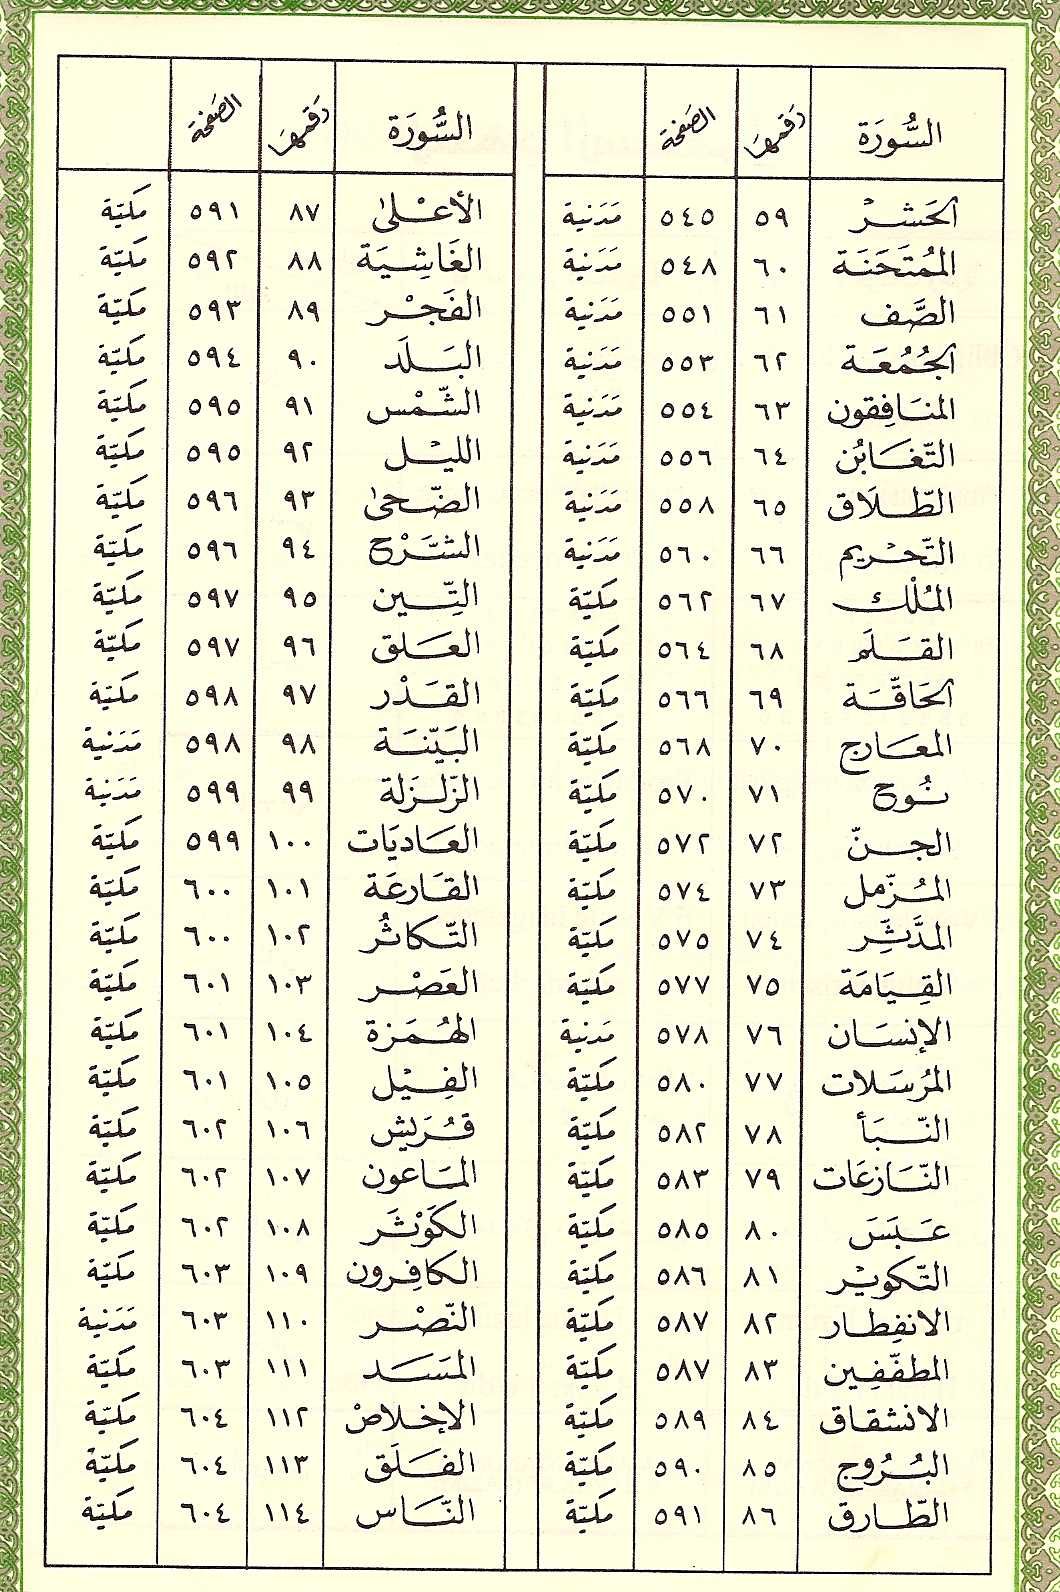 السُّورَة رَقمهَا الصَفحَة
الحَشْر ٥٩ ٥٤٥ مَدَنية
المُمتَحَنَة ٦٠ ٥٤٨ مَدَنية
الصَّف ٦١ ٥٥١ مَدَنية
الجُمُعَة ٦٢ ٥٥٣ مَدَنية
المنَافِقون ٦٣ ٥٥٤ مَدَنية
التّغَابُن ٦٤ ٥٥٦ مَدَنية
الطّلَاق ٦٥ ٥٥٨ مَدَنية
التّحْريم ٦٦ ٥٦٠ مَدَنية
المُلْك ٦٧ ٥٦٢ مَكيّة
القَلَم ٦٨ ٥٦٤ مَكيّة
الحَاقّة ٦٩ ٥٦٦ مَكيّة
المعَارج ٧٠ ٥٦٨ مَكيّة
نُوح ٧١ ٥٧٠ مَكيّة
الجنّ ٧٢ ٥٧٢ مَكيّة
المُزّمل ٧٣ ٥٧٤ مَكيّة
المدَّثِّر ٧٤ ٥٧٥ مَكيّة
القِيَامَة ٧٥ ٥٧٧ مَكيّة
الإنسَان ٧٦ ٥٧٨ مَدنية
المُرسَلات ٧٧ ٥٨٠ مَكيّة
النّبَأ ٧٨ ٥٨٢ مَكيّة
النّازعَات ٧٩ ٥٨٣ مَكيّة
عَبَسَ ٨٠ ٥٨٥ مَكيّة
التّكويْر ٨١ ٥٨٦ مَكيّة
الانفِطار ٨٢ ٥٨٧ مَكيّة
المطفّفِين ٨٣ ٥٨٧ مَكيّة
الانشقاق ٨٤ ٥٨٩ مَكيّة
البُرُوج ٨٥ ٥٩٠ مَكيّة
الطّارق ٨٦ ٥٩١ مَكيّة
السُّورَة رَقمهَا الصَفحَة
الأعْلىٰ ٨٧ ٥٩١ مَكيّة
الغَاشِيَة ٨٨ ٥٩٢ مَكيّة
الفَجْر ٨٩ ٥٩٣ مَكيّة
البَلَد ٩٠ ٥٩٤ مَكيّة
الشّمْس ٩١ ٥٩٥ مَكيّة
الليْل ٩٢ ٥٩٥ مَكيّة
الضّحىٰ ٩٣ ٥٩٦ مَكيّة
الشّرْح ٩٤ ٥٩٦ مَكيّة
التِّين ٩٥ ٥٩٧ مَكيّة
العَلق ٩٦ ٥٩٧ مَكيّة
القَدْر ٩٧ ٥٩٨ مَكيّة
البَيّنَة ٩٨ ٥٩٨ مَدَنية
الزّلزَلة ٩٩ ٥٩٩ مَدَنية
العَاديَات ١٠٠ ٥٩٩ مَكيّة
القَارعَة ١٠١ ٦٠٠ مَكيّة
التّكاثُر ١٠٢ ٦٠٠ مَكيّة
العَصْر ١٠٣ ٦٠١ مَكيّة
الهُمَزة ١٠٤ ٦٠١ مَكيّة
الفِيْل ١٠٥ ٦٠١ مَكيّة
قُرَيش ١٠٦ ٦٠٢ مَكيّة
المَاعون ١٠٧ ٦٠٢ مَكيّة
الكَوْثَر ١٠٨ ٦٠٢ مَكيّة
الكافِرون ١٠٩ ٦٠٣ مَكيّة
النّصْر ١١٠ ٦٠٣ مَدَنية
المَسَد ١١١ ٦٠٣ مَكيّة
الإخلاصْ ١١٢ ٦٠٤ مَكيّة
الفَلَق ١١٣ ٦٠٤ مَكيّة
النّاس ١١٤ ٦٠٤ مَكيّة